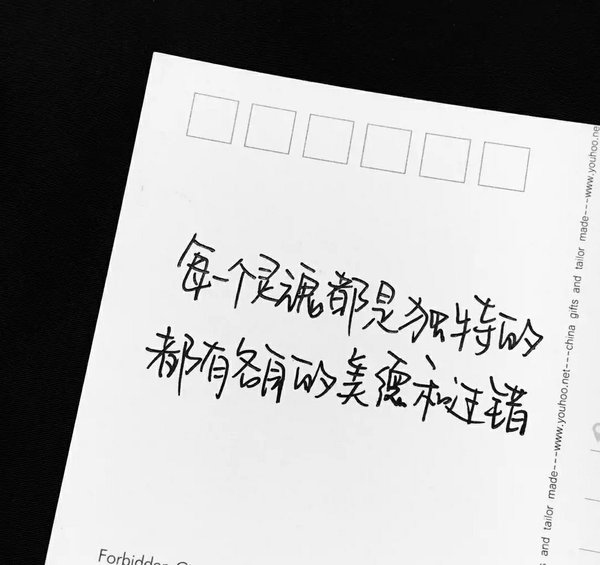 每一个灵魂都是独特的
都有各自的美德和过错
www.youhoo.ne
and tailor made---www.youhoo.net---china gifts and tailor made---
Forbidden